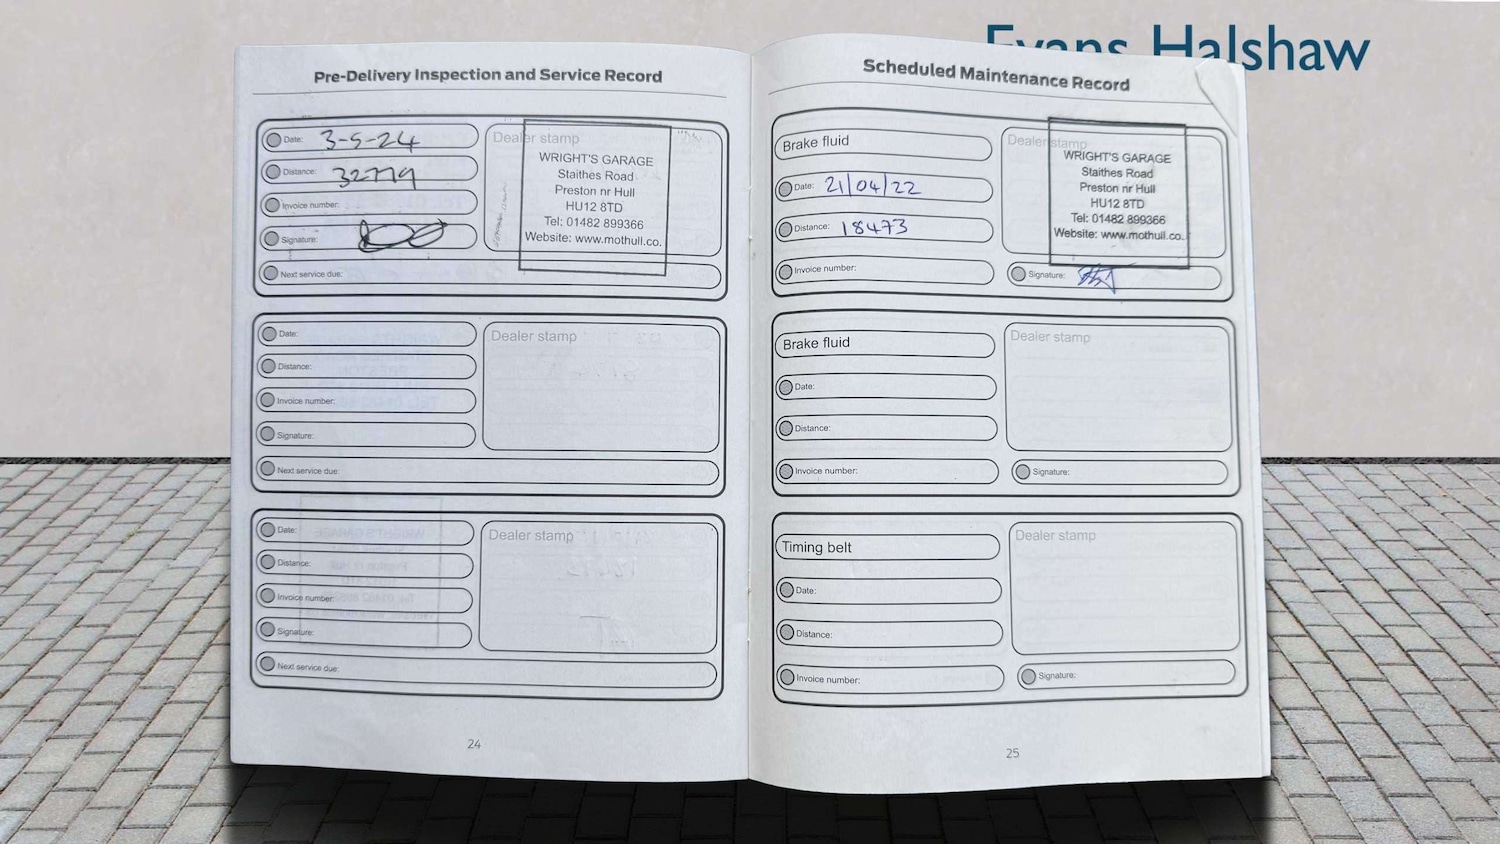 Evans Halshaw
Pre-Delivery Inspection and Service Record
Date: 3-5-24
Distance: 32779
Invoice number:
Signature:
Next service due:
Dealer stamp
WRIGHT'S GARAGE
Staithes Road
Preston nr Hull
HU12 8TD
Tel: 01482 899366
Website: www.mothull.co.
Date:
Distance:
Invoice number:
Signature:
Next service due:
Dealer stamp
Date:
Distance:
Invoice number:
Signature:
Next service due:
Dealer stamp
24
Scheduled Maintenance Record
Brake fluid
Date: 21/04/22
Distance: 18473
Invoice number:
Dealer stamp
WRIGHT'S GARAGE
Staithes Road
Preston nr Hull
HU12 8TD
Tel: 01482 899366
Website: www.mothull.co.
Signature:
Brake fluid
Date:
Distance:
Invoice number:
Dealer stamp
Signature:
Timing belt
Date:
Distance:
Invoice number:
Dealer stamp
Signature:
25